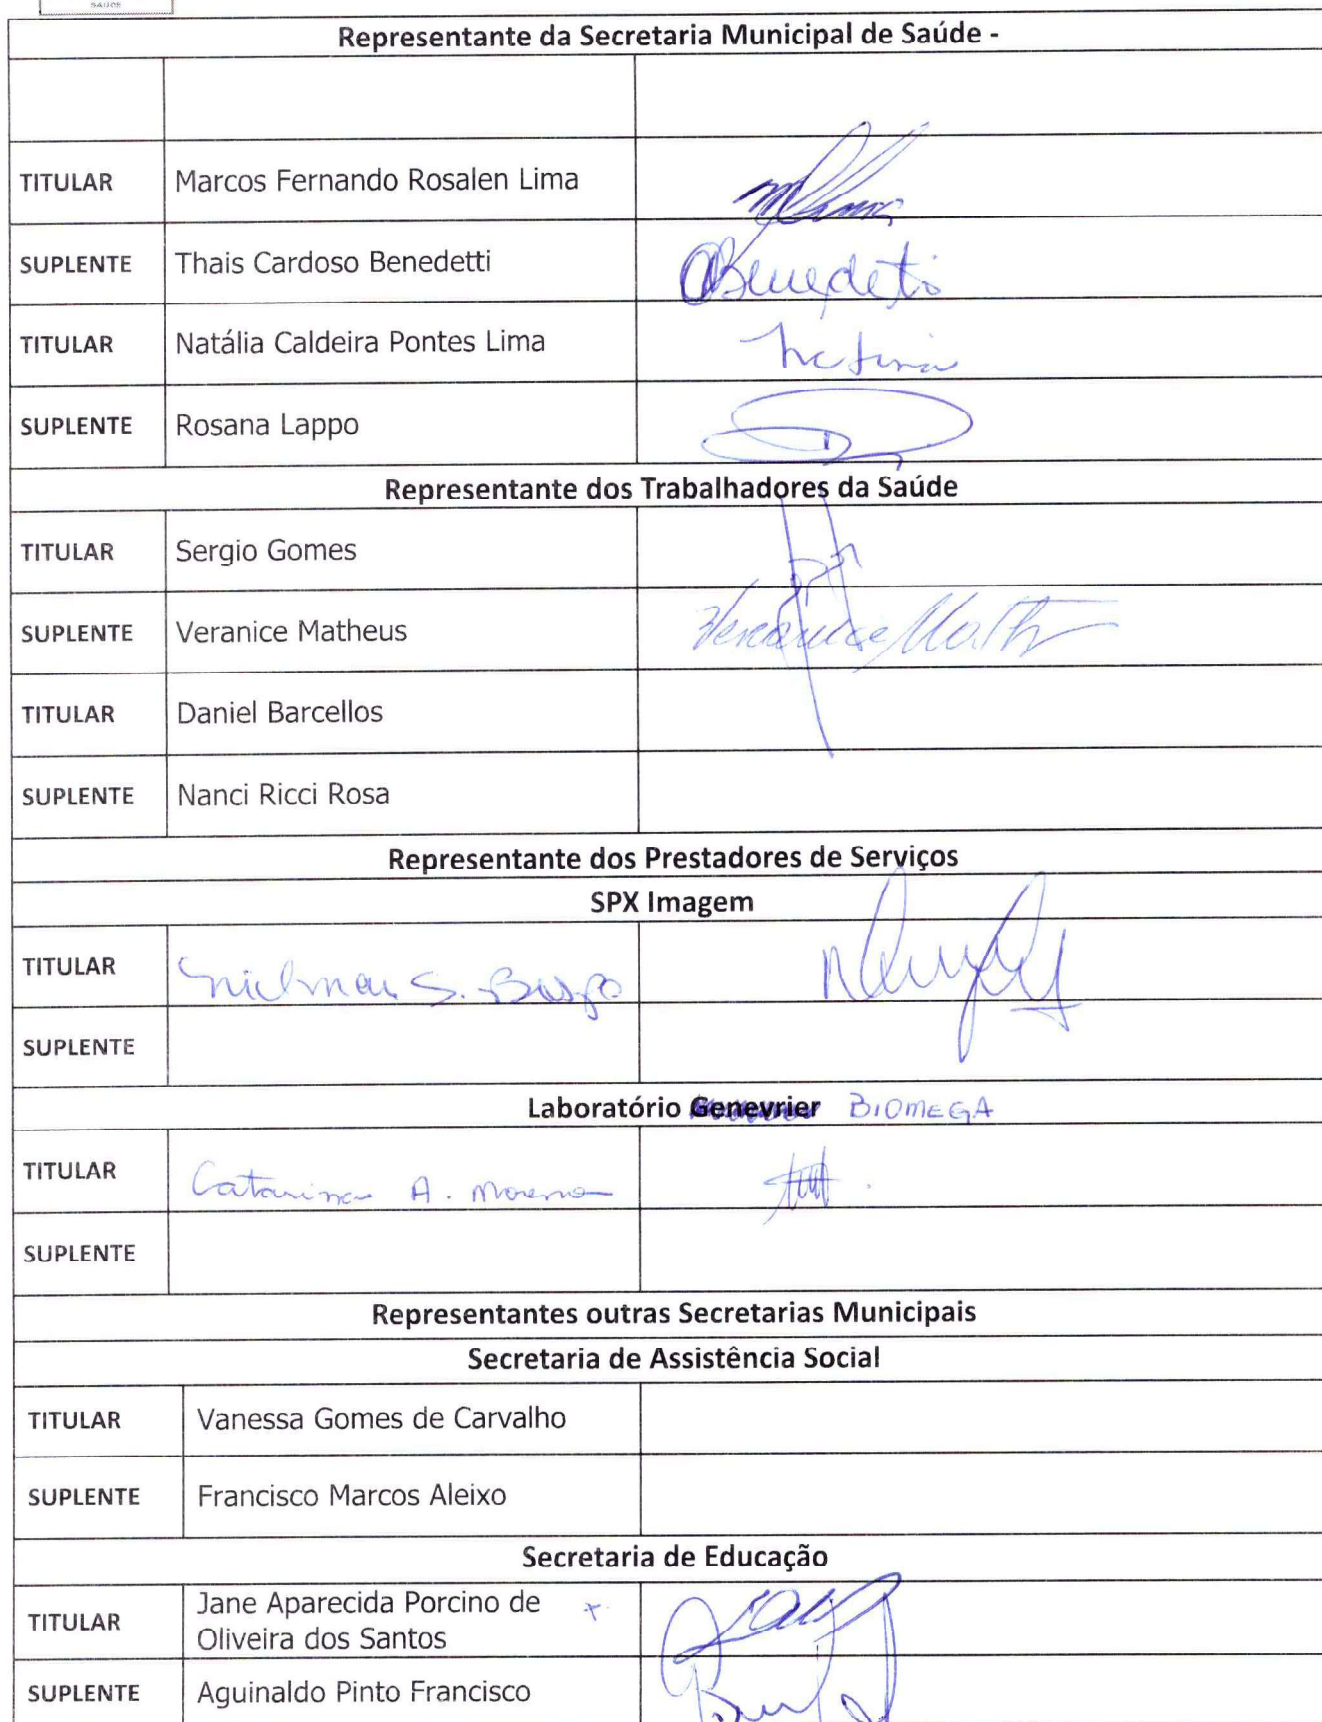 SAÚDE
Representante da Secretaria Municipal de Saúde -
TITULAR Marcos Fernando Rosalen Lima
SUPLENTE Thais Cardoso Benedetti Benedeti
TITULAR Natália Caldeira Pontes Lima
SUPLENTE Rosana Lappo
Representante dos Trabalhadores da Saúde
TITULAR Sergio Gomes
SUPLENTE Veranice Matheus Veranice Math
TITULAR Daniel Barcellos
SUPLENTE Nanci Ricci Rosa
Representante dos Prestadores de Serviços
SPX Imagem
TITULAR S.
SUPLENTE
Laboratório Genevrier BIOMEGA
TITULAR Catarina A. Moreno
SUPLENTE
Representantes outras Secretarias Municipais
Secretaria de Assistência Social
TITULAR Vanessa Gomes de Carvalho
SUPLENTE Francisco Marcos Aleixo
Secretaria de Educação
TITULAR Jane Aparecida Porcino de
Oliveira dos Santos
SUPLENTE Aguinaldo Pinto Francisco